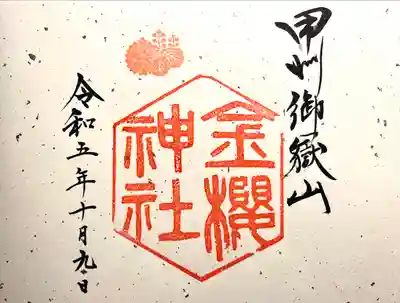 甲州御嶽山
金櫻
神社
令和五年十月九日